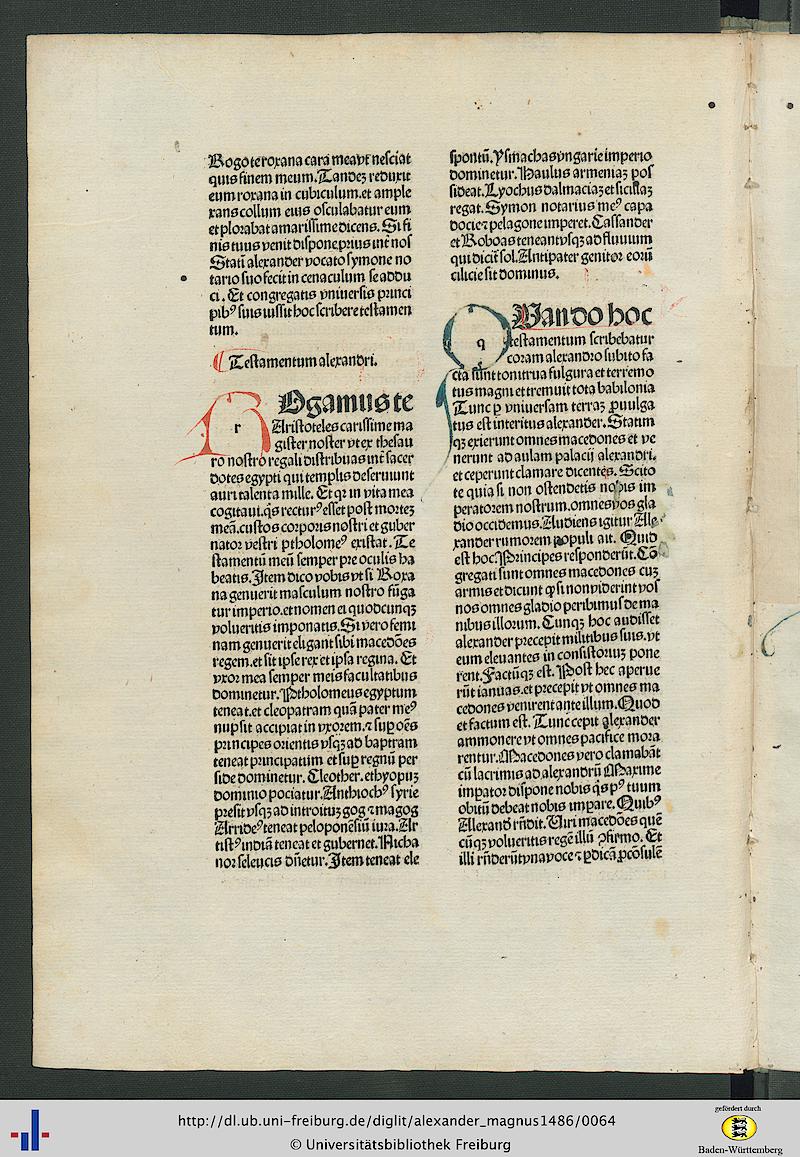 Rogo te roxana cara mea vt nesciat
quis finem meum. Tandeꝫ reduxit
eum roxana in cubiculum. et ample
xans collum eius osculabatur eum
et plorabat amarissime dicens. Si fi
nis tuus venit dispone prius int̃ nos
Statĩ alexander vocato symone no
tario suo fecit in cenaculum se addu
ci. Et congregatis vniuersis princi
pibꝰ suis iussit hoc scribere testamen
tum.
¶ Testamentum alexandri.
r Ogamus te
Aristoteles carissime ma
gister noster vt ex thesau
ro nostro regali distribuas int̃ sacer
dotes egypti qui templis deseruiunt
auri talenta mille. Et qꝛ in vita mea
cogitaui. q̃s recturꝰ esset post morteꝫ
meã. custos corporis nostri et guber
nator vestri ptholomeꝰ existat. Te
stamentũ meũ semper pre oculis ha
beatis. Item dico vobis vt si Roxa
na genuerit masculum nostro fũga
tur imperio. et nomen ei quodcunqꝫ
volueritis imponatis. Si vero femi
nam genuerit eligant sibi macedões
regem. et sit ipse rex et ipsa regina. Et
vxor mea semper meis facultatibus
dominetur. Ptholomeus egyptum
teneat. et cleopatram quã pater meꝰ
nupsit accipiat in vxorem. ⁊ suꝑ oẽs
principes orientis vsqꝫ ad baptram
teneat principatum et suꝑ regnũ per
side dominetur. Cleother. ethyopuꝫ
dominio pociatur. Anthiochꝰ syrie
presit vsqꝫ ad introituꝫ gog ⁊ magog
Arrideꝰ teneat peloponẽsiũ iura. Ar
tistꝰ indiã teneat et gubernet. Nicha
nor seleucis dñetur. Item teneat ele
spontũ. Ysmachas vngarie imperio
dominetur. Paulus armeniaꝫ pos
sideat. Lyochus dalmaciaꝫ et siciliaꝫ
regat. Symon notarius meꝰ capa
docie ⁊ pelagone imperet. Cassander
et Roboas teneant vsqꝫ ad fluuium
qui dicit̃ sol. Antipater genitor eorũ
cilicie sit dominus.
q Uando hoc
testamentum scribebatur
coram alexandro subito fa
cta sunt tonitrua fulgura et terremo
tus magni et tremuit tota babilonia
Tunc ꝑ vniuersam terraꝫ ꝓuulga
tus est interitus alexander. Statim
qꝫ exierunt omnes macedones et ve
nerunt ad aulam palacij alexandri.
et ceperunt clamare dicentes. Scito
te quia si non ostendetis nobis im
peratorem nostrum. omnes vos gla
dio occidemus. Audiens igitur Ale
xander rumorem populi ait. Quid
est hoc. Principes responderũt. Cõ
gregati sunt omnes macedones cuꝫ
armis et dicunt ꝙ si non viderint vos
nos omnes gladio peribimus de ma
nibus illorum. Cunqꝫ hoc audisset
alexander precepit militibus suis. vt
eum eleuantes in consistoriuꝫ pone
rent. Factũqꝫ est. Post hec aperue
rũt ianuas. et precepit vt omnes ma
cedones venirent ante illum. Quod
et factum est. Tunc cepit alexander
ammonere vt omnes pacifice mora
rentur. Macedones vero clamabãt
cũ lacrimis ad alexandrũ Maxime
impator dispone nobis q̃s pꝰ tuum
obitũ debeat nobis imꝑare. Quibꝰ
Alexand̃ rñdit. Uiri macedões quẽ
cũqꝫ volueritis regẽ illũ ꝯfirmo. Et
illi rñderũt vna voce ⁊ ꝑdicã ꝓcõsulẽ
http://dl.ub.uni-freiburg.de/diglit/alexander_magnus1486/0064
© Universitätsbibliothek Freiburg
gefördert durch
Baden-Württemberg